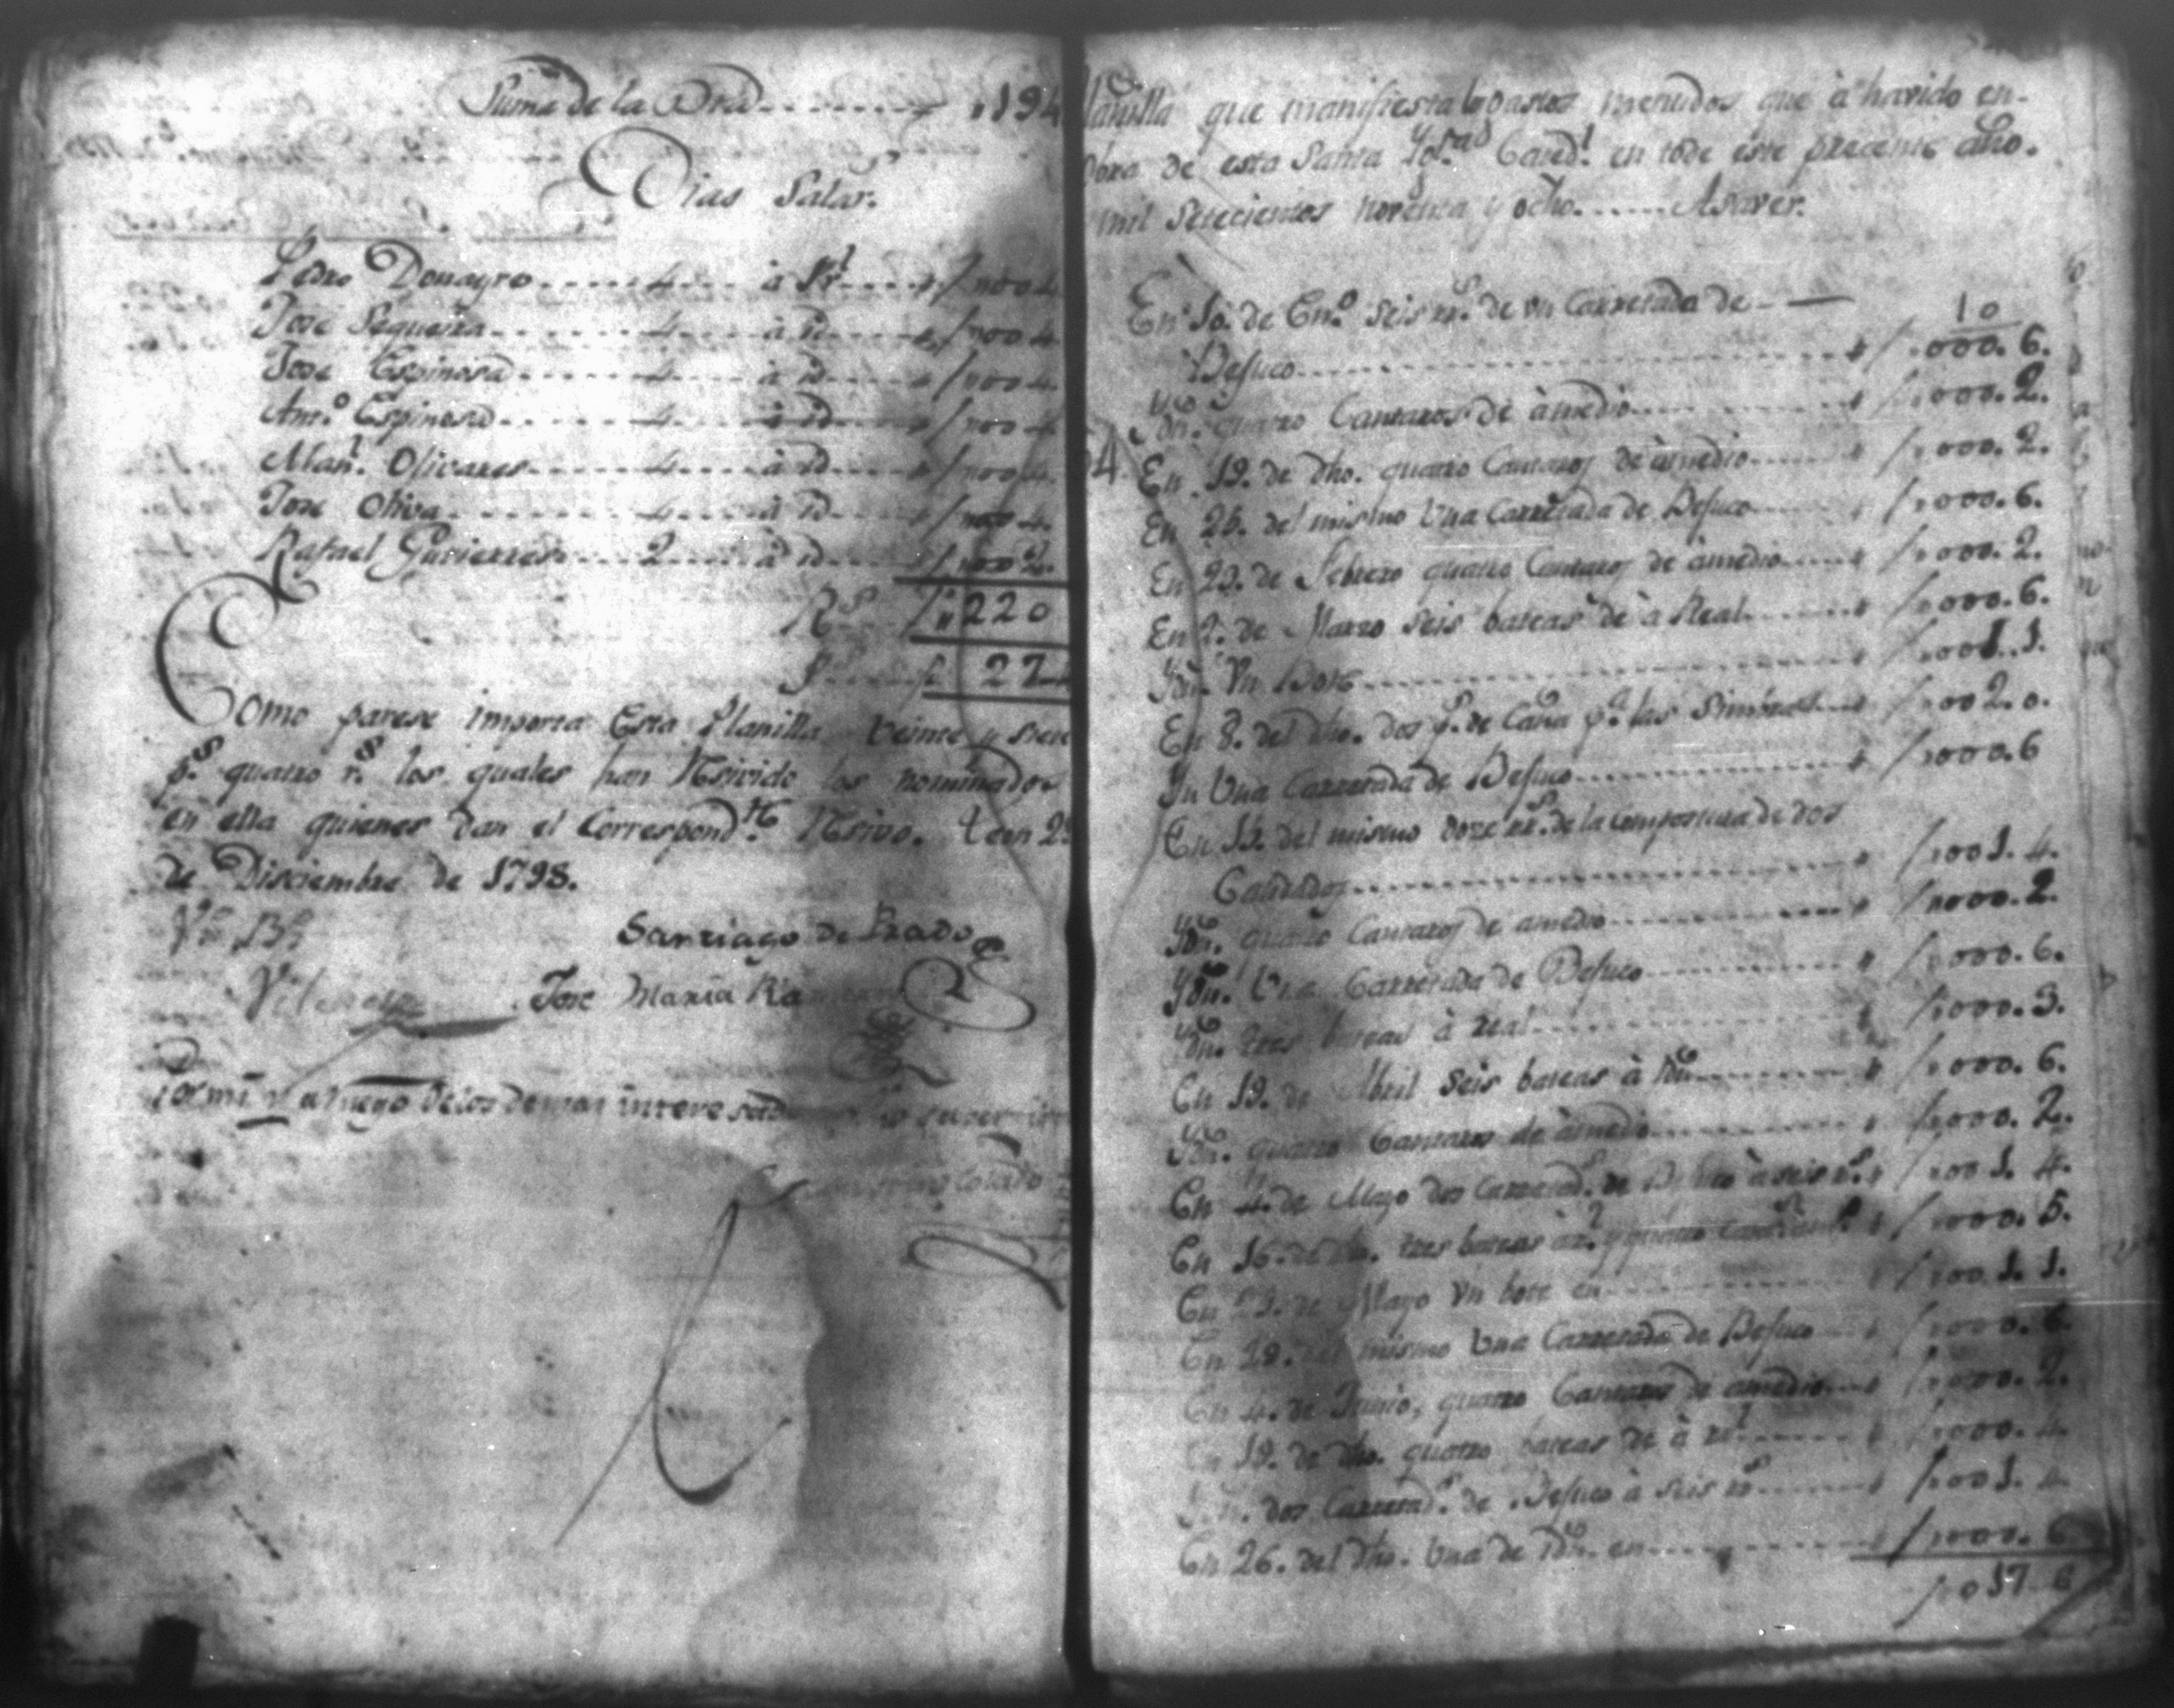 Suma de la Bta. 194
Dias Salar.
Pedro Donayro 4 à Rl. 004
Jose Sequeira 4 à id 004
Jose Espinosa 4 à id 004
Anto. Espinosa 4 à id 004
Manl. Olivares 4 à id 004
Jose Oliva 4 à id 004
Rafael Gutierres 2 à id 002
Rs. 220
Ps. 27
Como parese importa Esta Planilla veinte y siete
ps. quatro rs. los quales han Resivido los nominados
en ella quienes dan el Correspondte. Resivo. Leon 2
de Disciembre de 1798.
Vto. Bo.
Santiago de Prado
Jose Maria
Por mi y a ruego de los demas interesados
lanilla que manifiesta los gastos menudos que à havido en
obra de esta Santa Yglesia Catedl. en todo este precente año.
mil Setecientos noventa y ocho. Asaver.
En 10. de Eno. seis rs. de un Carretada de 10
Befuco 000.6.
Ydn. quatro Cantaros de à medio 000.2.
4 En 19. de dho. quatro Cantaros de à medio 000.2.
En 26. del mismo Una Carretada de Befuco 000.6.
En 23. de Febrero quatro Cantaros de à medio 000.2.
En 7. de Marzo seis bateas de à Real 000.6.
Ydn. Un Bote 001.1.
En 8. del dho. dos ps. de Caña pa. las 002.0.
Yn Una Carretada de Befuco 000.6
En 13. del mismo doze rs. de la compostura de dos
Candados 001.4.
Ydn. quatro Cantaros de amedio 000.2.
Ydn. Una Carretada de Befuco 000.6.
Ydn. tres bateas à real 000.3.
En 19. de Abril seis bateas à Ydn. 000.6.
Ydn. quatro Cantaros de àmedio 000.2.
En 4. de Mayo dos Carretads. de Befuco à seis rs. 001.4.
En 16. de dho. tres bateas à rl. y quatro 000.5.
En de Mayo Un bote en 001.1.
En 29. del mismo Una Carretada de Befuco 000.6.
En 4. de Junio, quatro Cantaros de amedio 000.2.
En 19. de dho. quatro bateas de à rl. 000.4.
Ydn. dos Carretads. de Befuco à seis rs. 001.4.
En 26. del dho. Una de Ydn. en 000.6
017.6